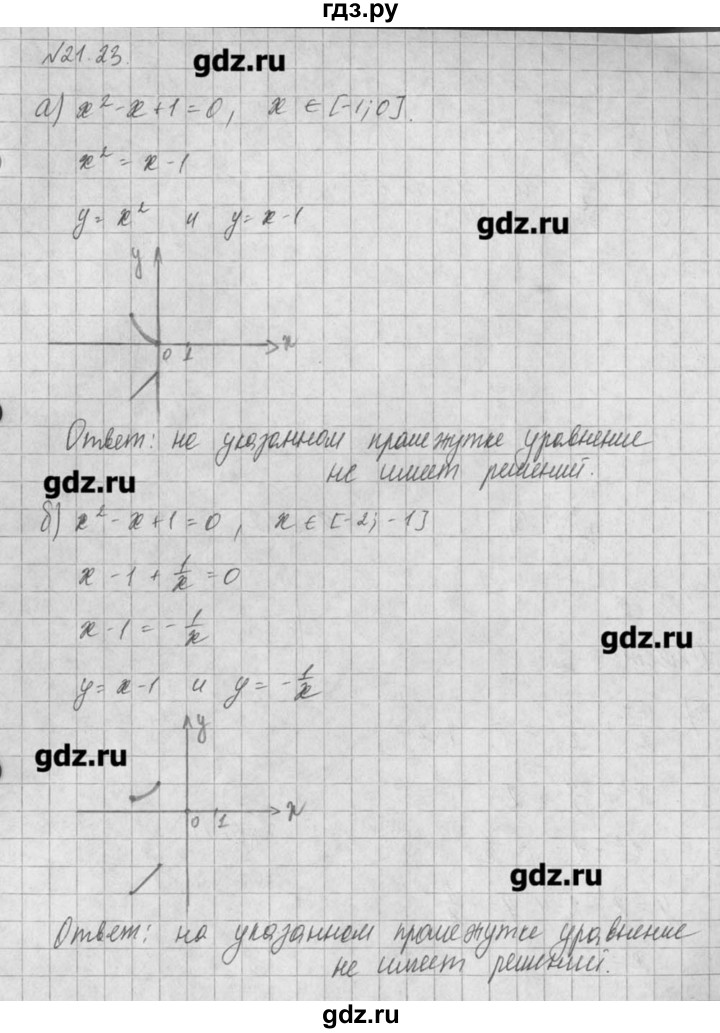 гдз.ру
№21.23.
gdz.ru
а) x² - x + 1 = 0, x ∈ [-1; 0].
x² = x - 1
gdz.ru
y = x² и y = x - 1
y
x
0 1
Ответ: на указанном промежутке уравнение
не имеет решений.
gdz.ru
б) x² - x + 1 = 0, x ∈ [-2; -1]
x - 1 + 1/x = 0
x - 1 = - 1/x
gdz.ru
y = x - 1 и y = - 1/x
y
gdz.ru
x
0 1
gdz.ru
Ответ: на указанном промежутке уравнение
не имеет решений.
gdz.ru